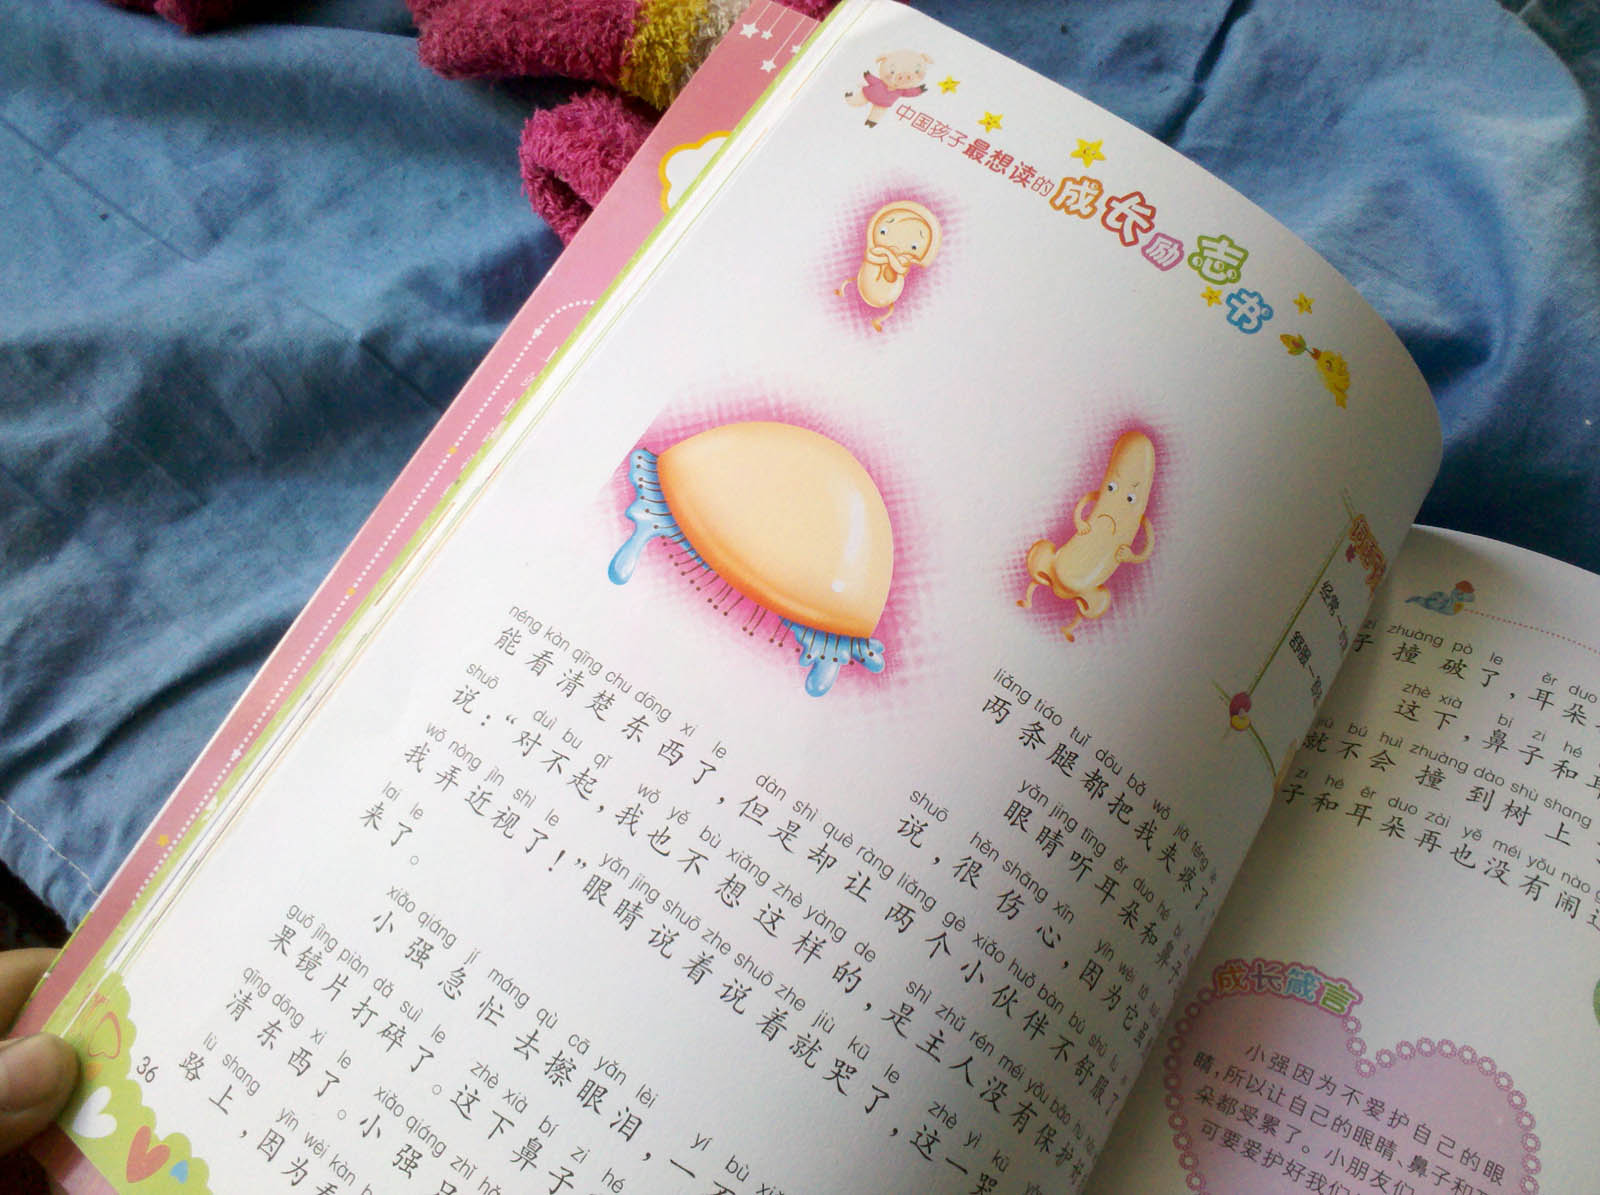 中国孩子最想读的成长励志书
liǎng tiáo tuǐ dōu bǎ wǒ jiā téng
两条腿都把我夹疼了
yǎn jing tīng ěr duo hé bí zi
眼睛听耳朵和鼻子
shuō hěn shāng xīn yīn wèi tā
说，很伤心，因为它虽
néng kàn qīng chu dōng xi le dàn shì què ràng liǎng gè xiǎo huǒ bàn bù shū fu
能看清楚东西了，但是却让两个小伙伴不舒服了
shuō duì bu qǐ wǒ yě bù xiǎng zhè yàng de shì zhǔ rén méi yǒu bǎo hù hǎo
说：“对不起，我也不想这样的，是主人没有保护好
wǒ nòng jìn shì le yǎn jing shuō zhe shuō zhe jiù kū le zhè yì kū
我弄近视了！”眼睛说着说着就哭了，这一哭
lai le
来了。
xiǎo qiáng jí máng qù cā yǎn lèi yí bù
小强急忙去擦眼泪，一不
guǒ jìng piàn dǎ suì le zhè xià bí zi hé
果镜片打碎了。这下鼻子
qīng dōng xi le xiǎo qiáng zhǐ hǎo
清东西了。小强只
lù shang yīn wèi kàn
路上，因为看
36
经常—
舒服—
zi zhuàng pò le ěr duo
子撞破了，耳朵
zhè xià bí zi hé
这下，鼻子和耳
jiù bú huì zhuàng dào shù shang
就不会撞到树上
zi hé ěr duo zài yě méi yǒu nào
子和耳朵再也没有闹过
成长箴言
小强因为不爱护自己的眼
睛，所以让自己的眼睛、鼻子和耳
朵都受累了。小朋友们
可要爱护好我们